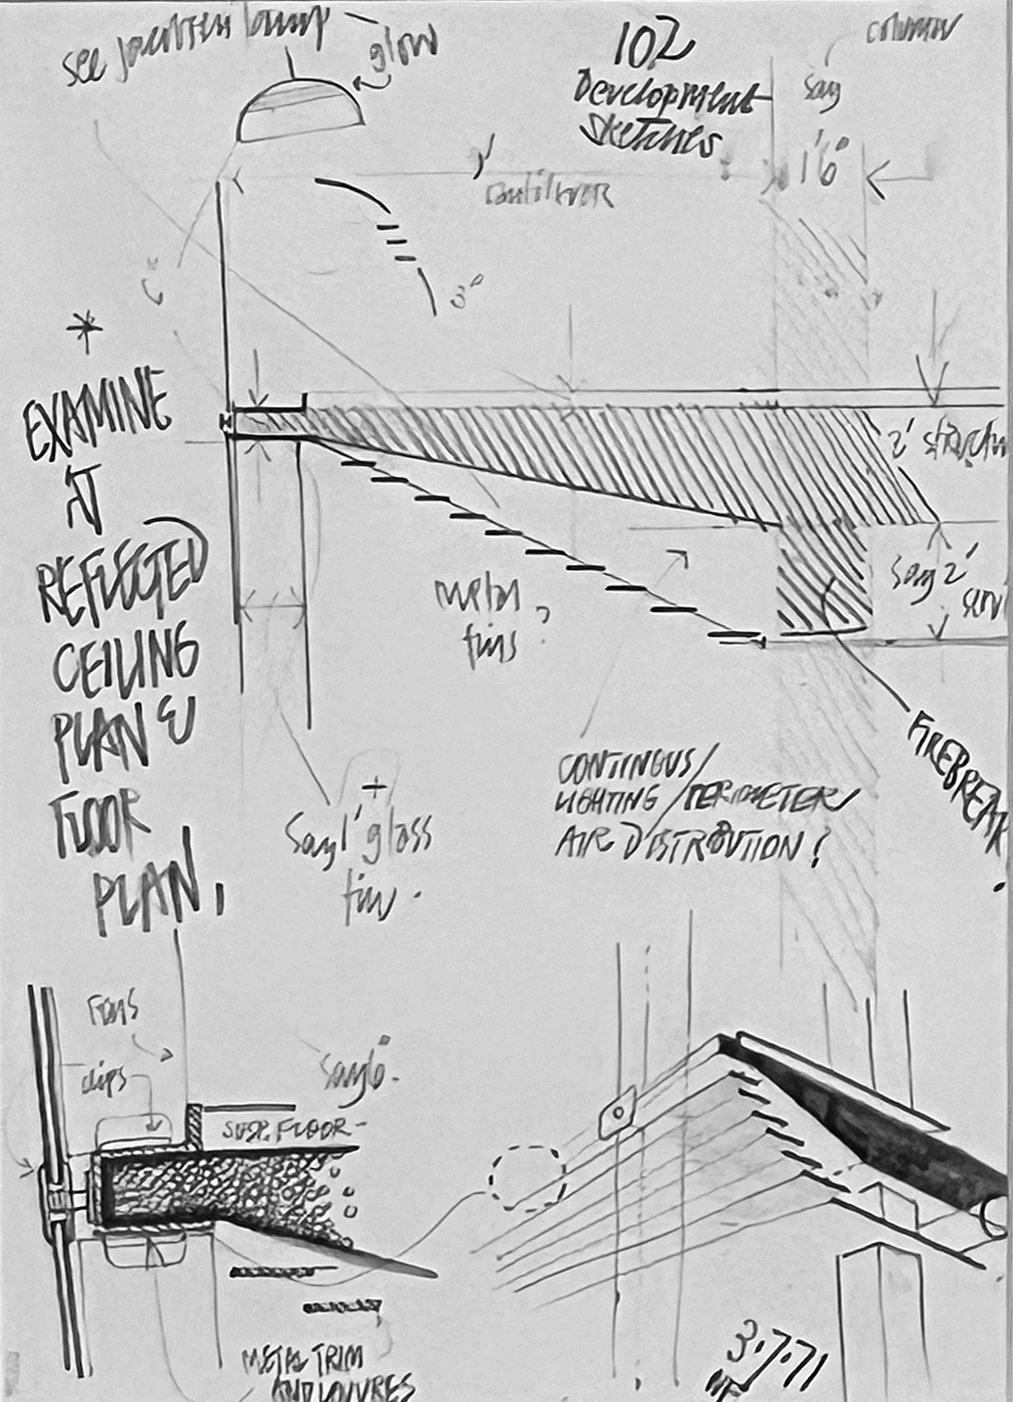 see Jacobsen lamp
glow
102
Development
Sketches
column
say
1'6"
cantilever
6"
3"
*
EXAMINE
AT
REFLECTED
CEILING
PLAN &
FLOOR
PLAN.
2' structu
say 2'
servi
metal
fins?
FIREBREAK
CONTINUUS/
LIGHTING / PERIMETER
AIR DISTRIBUTION?
+
Say 1' glass
fin.
clips
say 6".
SUSP. FLOOR-
METAL TRIM
AND LOUVRES
3.7.71